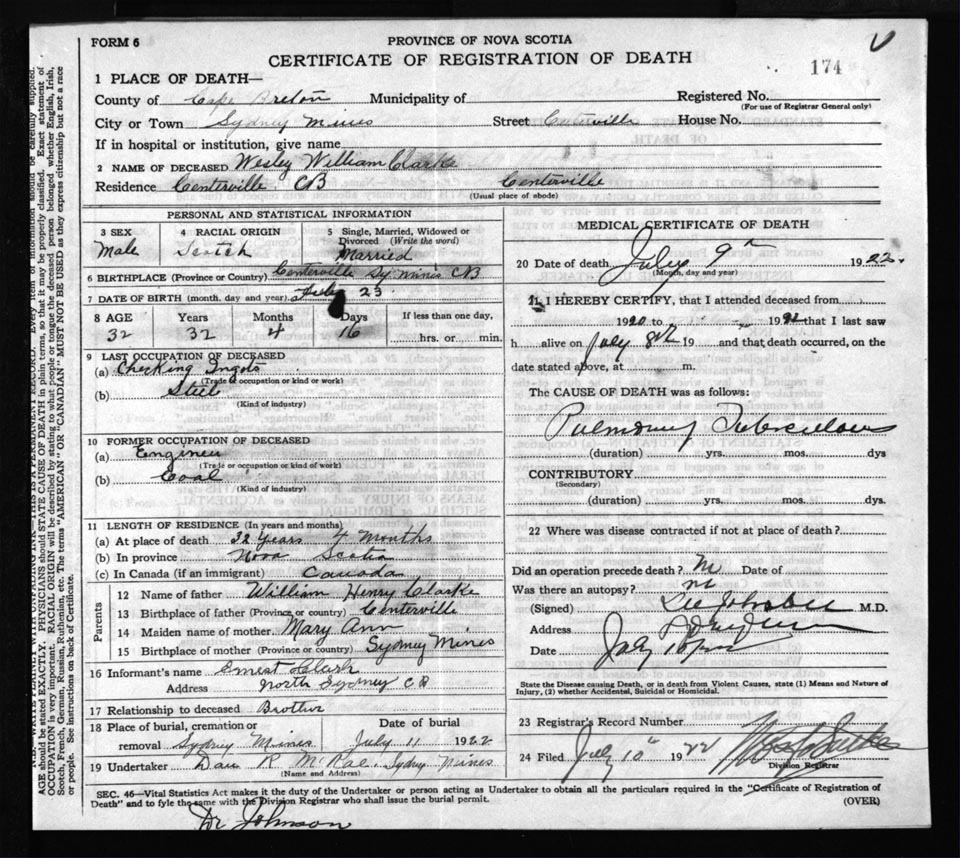 FORM 6
PROVINCE OF NOVA SCOTIA
CERTIFICATE OF REGISTRATION OF DEATH
174
1 PLACE OF DEATH—
County of Cape Breton Municipality of Registered No.
(For use of Registrar General only)
City or Town Sydney Mines Street Centerville House No.
If in hospital or institution, give name
2 NAME OF DECEASED Wesley William Clarke
Residence Centerville CB Centerville
(Usual place of abode)
PERSONAL AND STATISTICAL INFORMATION
3 SEX Male
4 RACIAL ORIGIN Scotch
5 Single, Married, Widowed or Divorced (Write the word) Married
6 BIRTHPLACE (Province or Country) Centerville Sy Mines CB
7 DATE OF BIRTH (month, day and year) 23
8 AGE Years Months Days If less than one day,
32 32 4 16 hrs. or min.
9 LAST OCCUPATION OF DECEASED
(a) Checking Ingots
(Trade or occupation or kind or work)
(b) Steel
(Kind of industry)
10 FORMER OCCUPATION OF DECEASED
(a) Engineer
(Trade or occupation or kind of work)
(b) Coal
(Kind of industry)
11 LENGTH OF RESIDENCE (In years and months)
(a) At place of death 32 Years 4 Months
(b) In province Nova Scotia
(c) In Canada (if an immigrant) Canada
Parents
12 Name of father William Henry Clarke
13 Birthplace of father (Province or country) Centerville
14 Maiden name of mother Mary Ann
15 Birthplace of mother (Province or country) Sydney Mines
16 Informant's name Ernest Clark
Address North Sydney CB
17 Relationship to deceased Brother
18 Place of burial, cremation or Date of burial
removal Sydney Mines July 11 1922
19 Undertaker Dan R McRae, Sydney Mines
(Name and Address)
MEDICAL CERTIFICATE OF DEATH
20 Date of death July 9th 1922.
(Month, day and year)
21 I HEREBY CERTIFY, that I attended deceased from
1920 to 19 that I last saw
h alive on July 8th 19 and that death occurred, on the
date stated above, at m.
The CAUSE OF DEATH was as follows:
Pulmonary Tuberculous
(duration) yrs. mos. dys
CONTRIBUTORY
(Secondary)
(duration) yrs. mos. dys
22 Where was disease contracted if not at place of death?
Did an operation precede death? Date of
Was there an autopsy? no
(Signed) M.D.
Address
Date July
State the Disease causing Death, or in death from Violent Causes, state (1) Means and Nature of
Injury, (2) whether Accidental, Suicidal or Homicidal.
23 Registrar's Record Number
24 Filed July 10th 1922
Division Registrar
SEC. 46—Vital Statistics Act makes it the duty of the Undertaker or person acting as Undertaker to obtain all the particulars required in the "Certificate of Registration of
Death" and to fyle the same with the Division Registrar who shall issue the burial permit. (OVER)
Dr Johnson